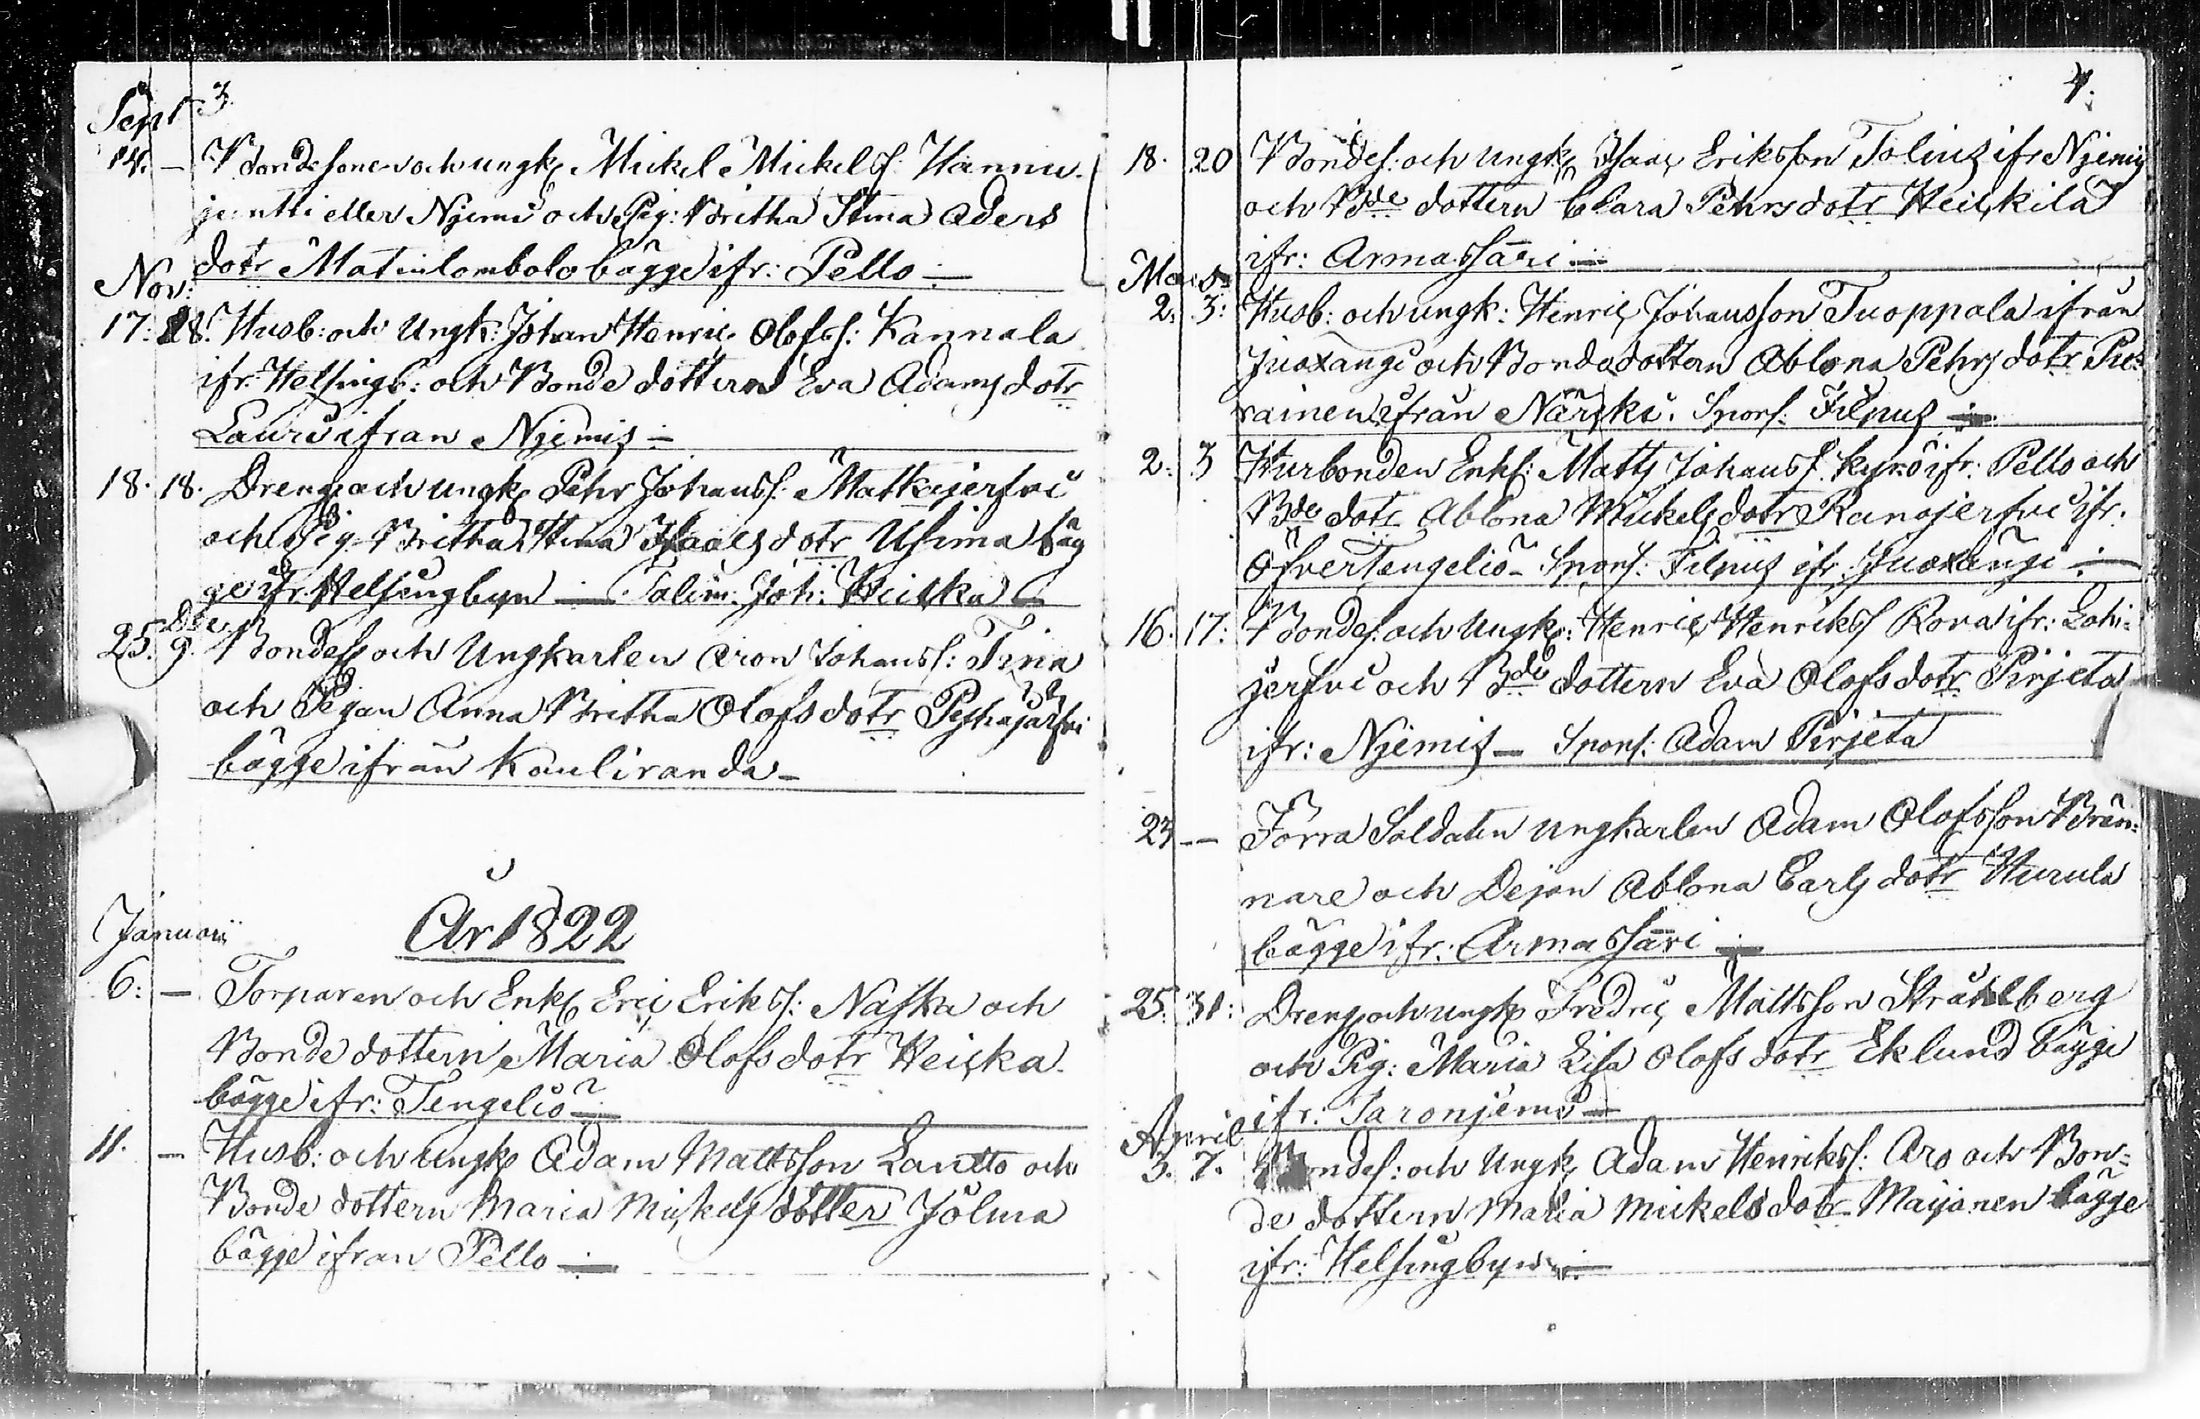 Sept 3.
14. — Bondesonen och ungk. Mickel Mickelss: Hannu-
juntti eller Njemi och Pig: Britha Stina Aders
dotr Matinlombolo bägge ifr: Pello —
Nov:
17. 18. Husb: och Ungk: Johan Henric Olofss: Kannala
ifr: Helsingb: och Bonde dottern Eva Adams dotr
Lauri ifran Njemis —
18. 18. Dreng och ungk Pehr Johanss: Matkajerfvi
och Pig. Britha Stina Isaacs dotr Usima bäg
ge ifr. Helsingbyn — Joh: Heicka
Dec
25. 9. Bondes och Ungkarlen Aron Johanss: Tina
och Pigan Anna Britha Olofs dotr
bägge ifrån Kauliranda —
År 1822
Januarii
6: — Torparen och Enkl Eric Erikss: Naska och
Bonde dottern Maria Olofs dotr Heicka
bägge ifr: Tengeliö —
11. — Husb: och ungk Adam Mattsson Lantto och
Bonde dottern Maria Mickels dotter Jolma
bägge ifran Pello —
4.
18. 20 Bondes: och ungk Isaac Eriksson Tolius ifr Njemis
och Bde dottern Clara Pehrs dotr Heickilä
ifr: Armassaari —
Mars
2. 3: Husb: och ungk: Henric Johansson Tuoppala ifrån
Juoxangi och Bondedottern Ablona Pehrs dotr Pu-
rainen ifrån Närcki. Spons: Filpus —
2. 3 Husbonden Enkl: Matts Johanss. Kyrö ifr: Pello och
Bde dotr Ablona Mickels dotr Ranojerfvi ifr.
Öfver Tengeliö — Spons: Filpus ifr. Juoxangi —
16. 17: Bondes: och Ungk: Henric Henrikss Rova ifr: Lohi-
jerfvi och Bde dottern Eva Olofs dotr Pirjeta
ifr: Njemis — Spons: Adam Pirjeta
23 — Förra Soldaten ungkarlen Adam Olofsson Brän-
nare och Dejan Ablona Carls dotr Hurula
bägge ifr: Armassaari —
25. 31: Dreng och ungk Fredric Mattsson Strahlberg
och Pig: Maria Lisa Olofs dotr Eklund bägge
ifr: Taronjemi —
April
5. 7. Bondes: och Ungk Adam Henrikss: Aro och Bon-
de dottern Maria Mickels dotr Maijanen bägge
ifr: Helsingbyn —